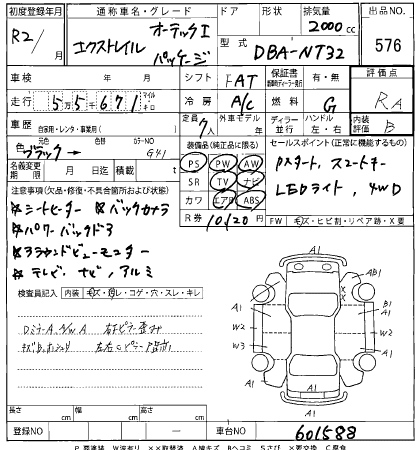 初度登録年月 通称車名・グレード ドア 形状 排気量 出品NO.
R2/ 月 エクストレイル オーテックI パッケージ 2000cc 576
型式 DBA-NT32
車検 年 月 シフト FAT 保証書 有・無 評価点
走行 55671 マイル キロ 冷房 A/C 燃料 G RA
車歴 自家用・レンタ・事業用( ) 定員 7人 外車モデル 年 ディーラー 並行 ハンドル 左・右 内装評価 B
色 元色 ブラック → カラーNO G41 装備品(純正品に限る) セールスポイント(正常に機能するもの)
名義変更期限 月 日 積載 t PS PW AW Pスタート、スマートキー
注意事項(欠品・修復・不具合箇所および状態) SR TV ナビ LEDライト、4WD
☆シートヒーター ☆バックカメラ カワ エアB ABS
☆パワーバックドア R券 10120円 FW キズ・ヒビ割・リペア跡・X要
☆アラウンドビューモニター
☆テレビ ナビ ノアルミ
検査員記入 内装 キズ・汚レ・コゲ・穴・スレ・キレ
DミラーA、A/W A
A1 AB1 A1 B1 W2 W2 W3 A1 A1 A1 A1 X X
長さ cm 幅 cm 高さ cm
登録NO ー 車台NO 601588
P要塗装 W波有り XX取替済 A線キズ Bヘコミ Sさび X要交換 C腐食